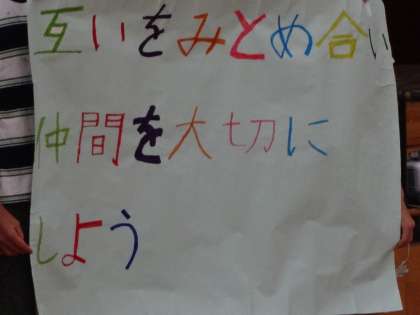 互いをみとめ合い
仲間を大切に
しよう